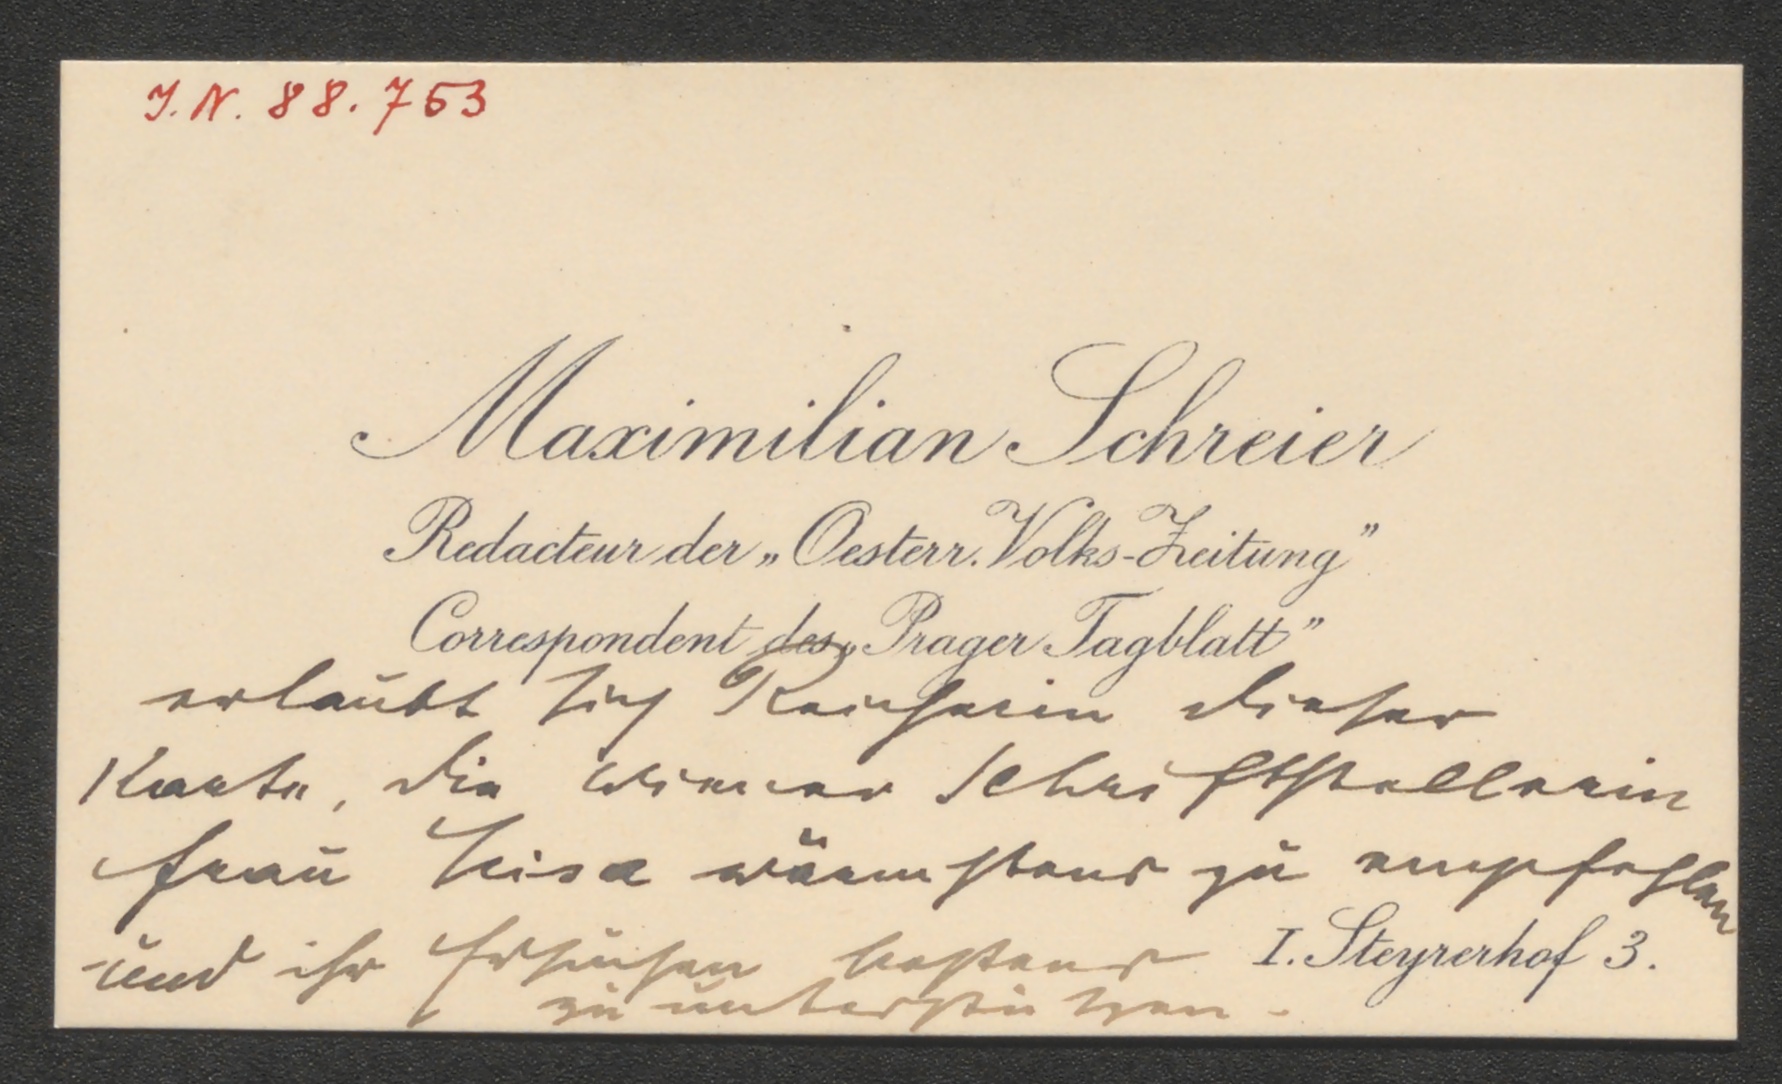 J.N. 88.753
Maximilian Schreier
Redacteur der „Oesterr. Volks-Zeitung”
Correspondent des „Prager Tagblatt”
erlaubt sich dieser
Karte, die Wiener Schriftstellerin
Frau wärmstens zu empfehlen
und ihr Ersuchen bestens I. Steyrerhof 3.
zu unterstützen.